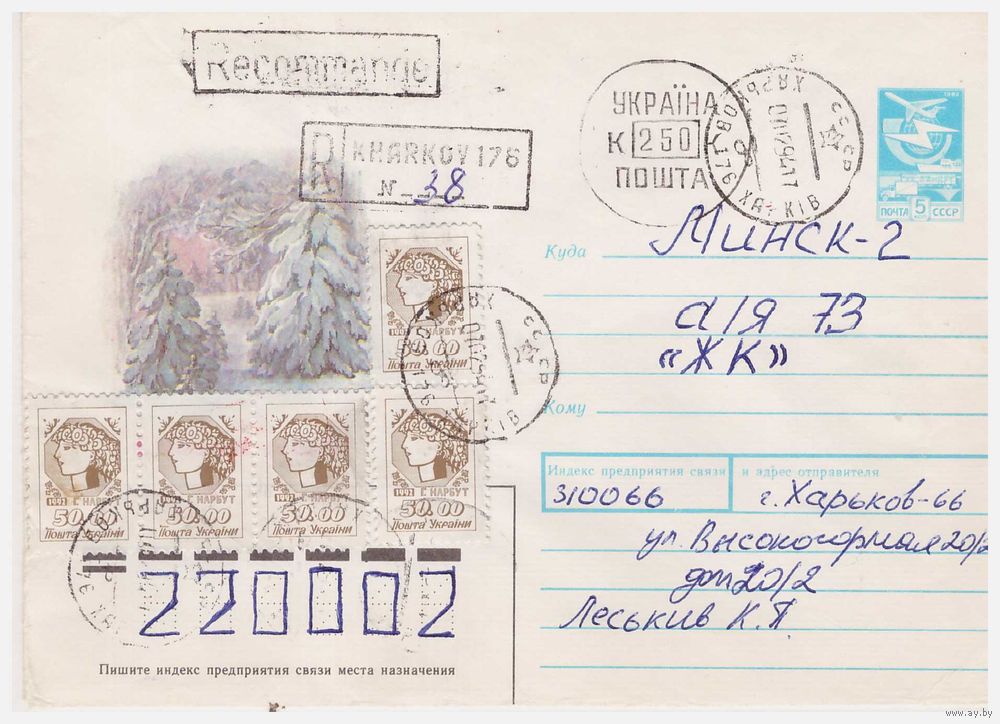 Recommande
R
KHARKOV 176
N 38
УКРАЇНА
К 250
ПОШТА
ХАРЬКОВ 176 ХАРКІВ
СССР
1982
ПОЧТА 5 СССР
Куда
Минск-2
а/я 73
«ЖК»
Кому
1992 Г. НАРБУТ
50.00
Пошта України
1992 Г. НАРБУТ
50.00
Пошта України
1992 Г. НАРБУТ
50.00
Пошта України
1992 Г. НАРБУТ
50.00
Пошта України
1992 Г. НАРБУТ
50.00
Пошта України
Индекс предприятия связи и адрес отправителя
310066 г. Харьков-66
ул. Высокогорная 20/2
дом 20/2
Леськив К.П
220002
Пишите индекс предприятия связи места назначения
© www.ay.by